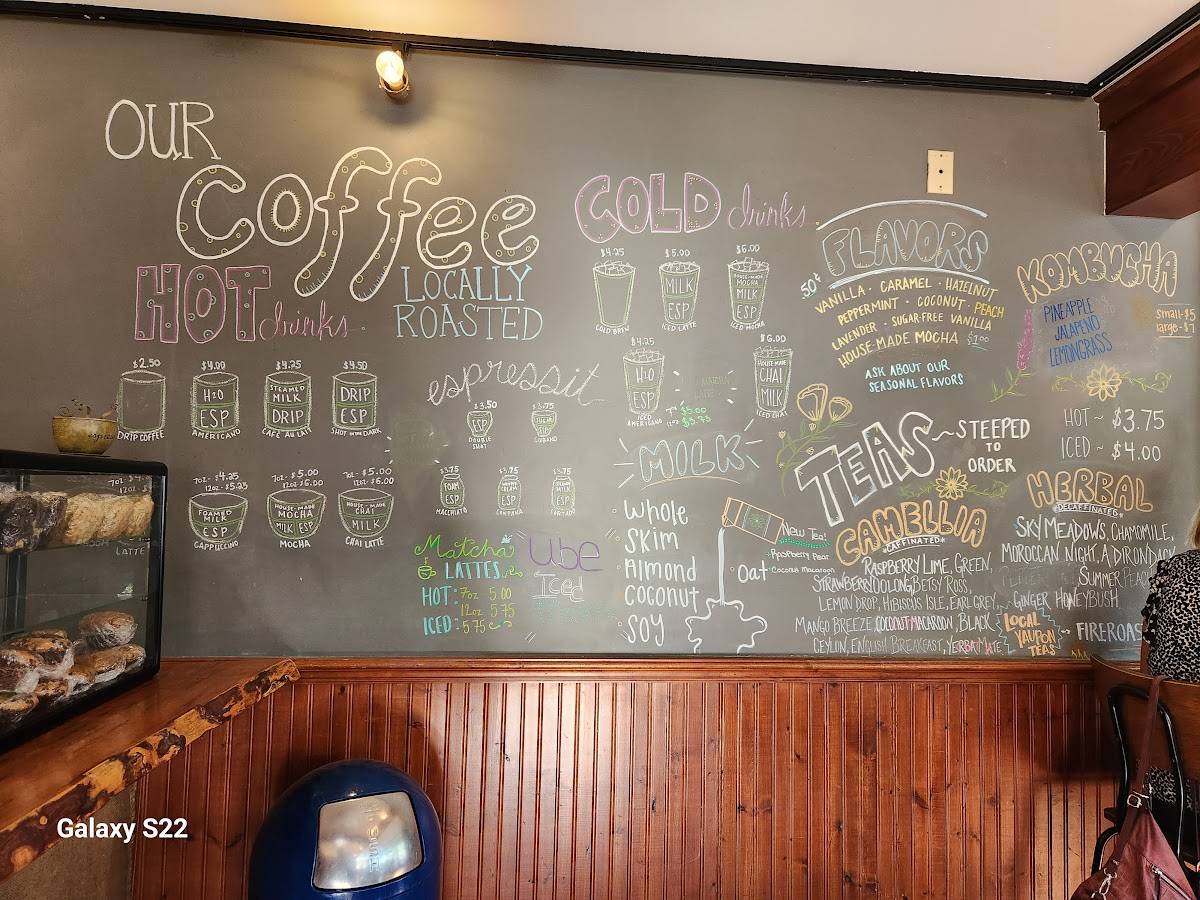 OUR
Coffee
LOCALLY
ROASTED
HOT drinks
$2.50
DRIP COFFEE
$4.00
H2O
ESP
AMERICANO
$4.25
STEAMED
MILK
DRIP
CAFÉ AU LAIT
$4.50
DRIP
ESP
SHOT IN THE DARK
7oz - $4.25
12oz - $5.25
FOAMED
MILK
ESP
CAPPUCCINO
7oz - $5.00
12oz - $6.00
HOUSE-MADE
MOCHA
MILK ESP
MOCHA
7oz - $5.00
12oz - $6.00
HOUSE-MADE
CHAI
MILK
CHAI LATTE
LATTE
espressit
$3.50
ESP
DOUBLE
SHOT
$3.75
ESP
CUBANO
$3.75
FOAM
ESP
MACCHIATO
$3.75
ESP
$3.75
ESP
CORTADO
Matcha
LATTES
HOT: 7oz 5.00
12oz 5.75
ICED: 5.75
Ube
Iced
COLD drinks
$4.25
COLD BREW
$5.00
MILK
ESP
ICED LATTE
$6.00
HOUSE-MADE
MOCHA
MILK
ESP
ICED MOCHA
$4.25
H2O
ESP
ICED
AMERICANO
$5.00
$5.75
$6.00
HOUSE MADE
CHAI
MILK
ICED CHAI
MILK
Whole
Skim
Almond
Coconut
Soy
Oat
New Tea!
Raspberry Pear
Coconut Macaroon
FLAVORS
.50¢
VANILLA · CARAMEL · HAZELNUT
PEPPERMINT · COCONUT · PEACH
LAVENDER · SUGAR-FREE VANILLA
HOUSE-MADE MOCHA $1.00
ASK ABOUT OUR
SEASONAL FLAVORS
KOMBUCHA
PINEAPPLE
JALAPENO
LEMONGRASS
small-$5
large-$7
TEAS ~ STEEPED
TO
ORDER
HOT ~ $3.75
ICED ~ $4.00
CAMELLIA
CAFFINATED
RASPBERRY LIME, GREEN,
STRAWBERRY OOLONG, BETSY ROSS,
LEMON DROP, HIBISCUS ISLE, EARL GREY,
MANGO BREEZE, COCONUT MACAROON, BLACK
CEYLON, ENGLISH BREAKFAST, YERBA MATE
HERBAL
DECAFFINATED
SKY MEADOWS, CHAMOMILE,
MOROCCAN NIGHT, ADIRONDACK
SUMMER PEACH
GINGER HONEYBUSH
LOCAL
YAUPON
TEAS
~ FIREROAS
Galaxy S22